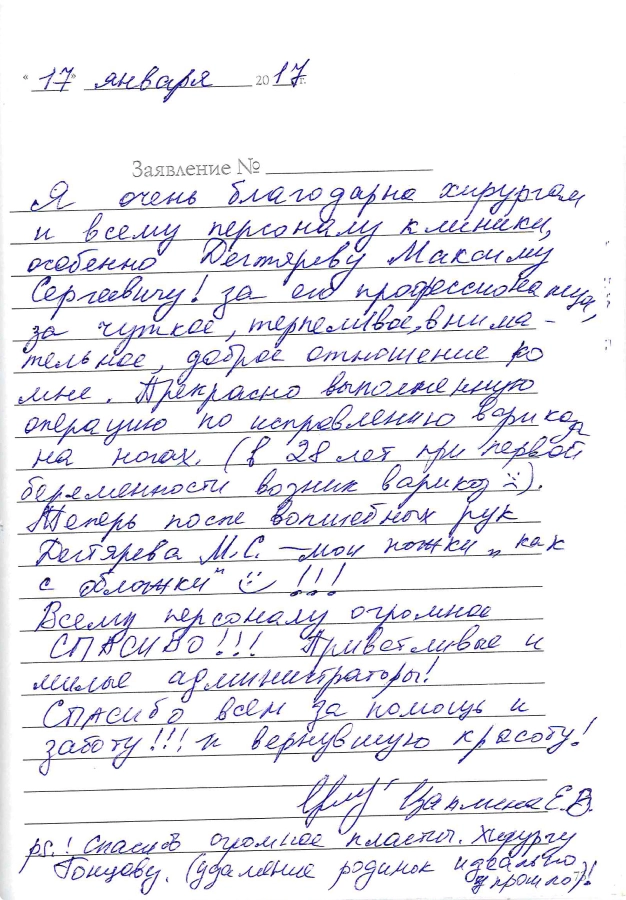 "17" января 2017г.
Заявление №
Я очень благодарна хирургам
и всему персоналу клиники,
особенно Дегтяреву Максиму
Сергеевичу! за его профессионализм,
за чуткое, терпеливое, внима-
тельное, доброе отношение ко
мне. Прекрасно выполненную
операцию по исправлению варикоза
на ногах. (в 28 лет при первой
беременности возник варикоз ☹).
Теперь после волшебных рук
Дегтярева М.С. – мои ножки „как
с обложки" ☺ !!!
Всему персоналу огромное
СПАСИБО!!! Приветливые и
милые администраторы!
СПАСИБО всем за помощь и
заботу!!! и вернувшую красоту!
Е.В.
ps.! Спасибо огромное пластич. хирургу
Гонцову. (удаление родинок идеально
прошло)!